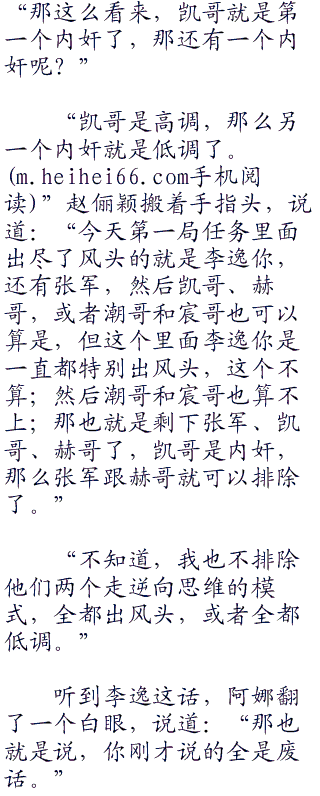 “那这么看来，凯哥就是第
一个内奸了，那还有一个内
奸呢？”
“凯哥是高调，那么另
一个内奸就是低调了。
(m.heihei66.com手机阅
读)”赵俪颖搬着手指头，说
道：“今天第一局任务里面
出尽了风头的就是李逸你，
还有张军，然后凯哥、赫
哥，或者潮哥和宸哥也可以
算是，但这个里面李逸你是
一直都特别出风头，这个不
算；然后潮哥和宸哥也算不
上；那也就是剩下张军、凯
哥、赫哥了，凯哥是内奸，
那么张军跟赫哥就可以排除
了。”
“不知道，我也不排除
他们两个走逆向思维的模
式，全都出风头，或者全都
低调。”
听到李逸这话，阿娜翻
了一个白眼，说道：“那也
就是说，你刚才说的全是废
话。”